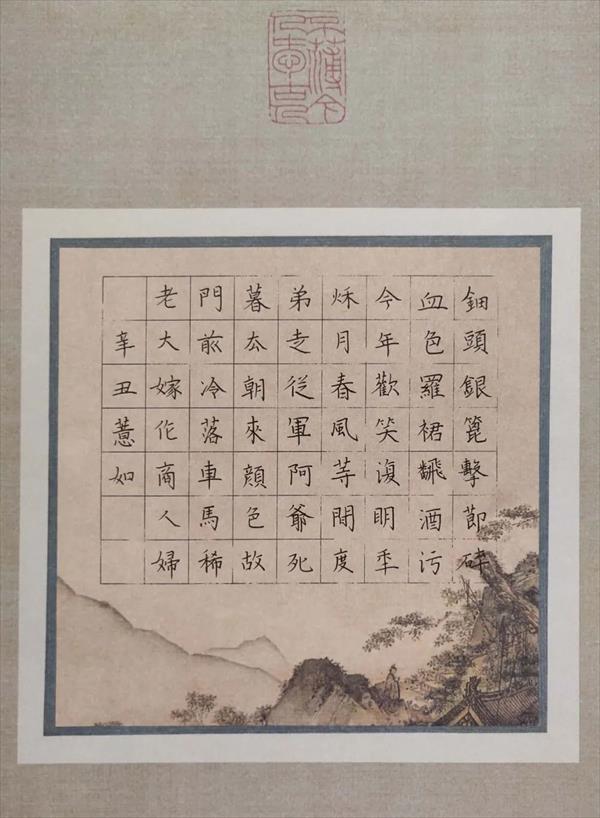 鈿頭銀篦擊節碎
血色羅裙飜酒污
今年歡笑復明秊
秌月春風等閒度
弟走從軍阿爺死
暮去朝來顏色故
門前冷落車馬稀
老大嫁作商人婦
辛丑薏如